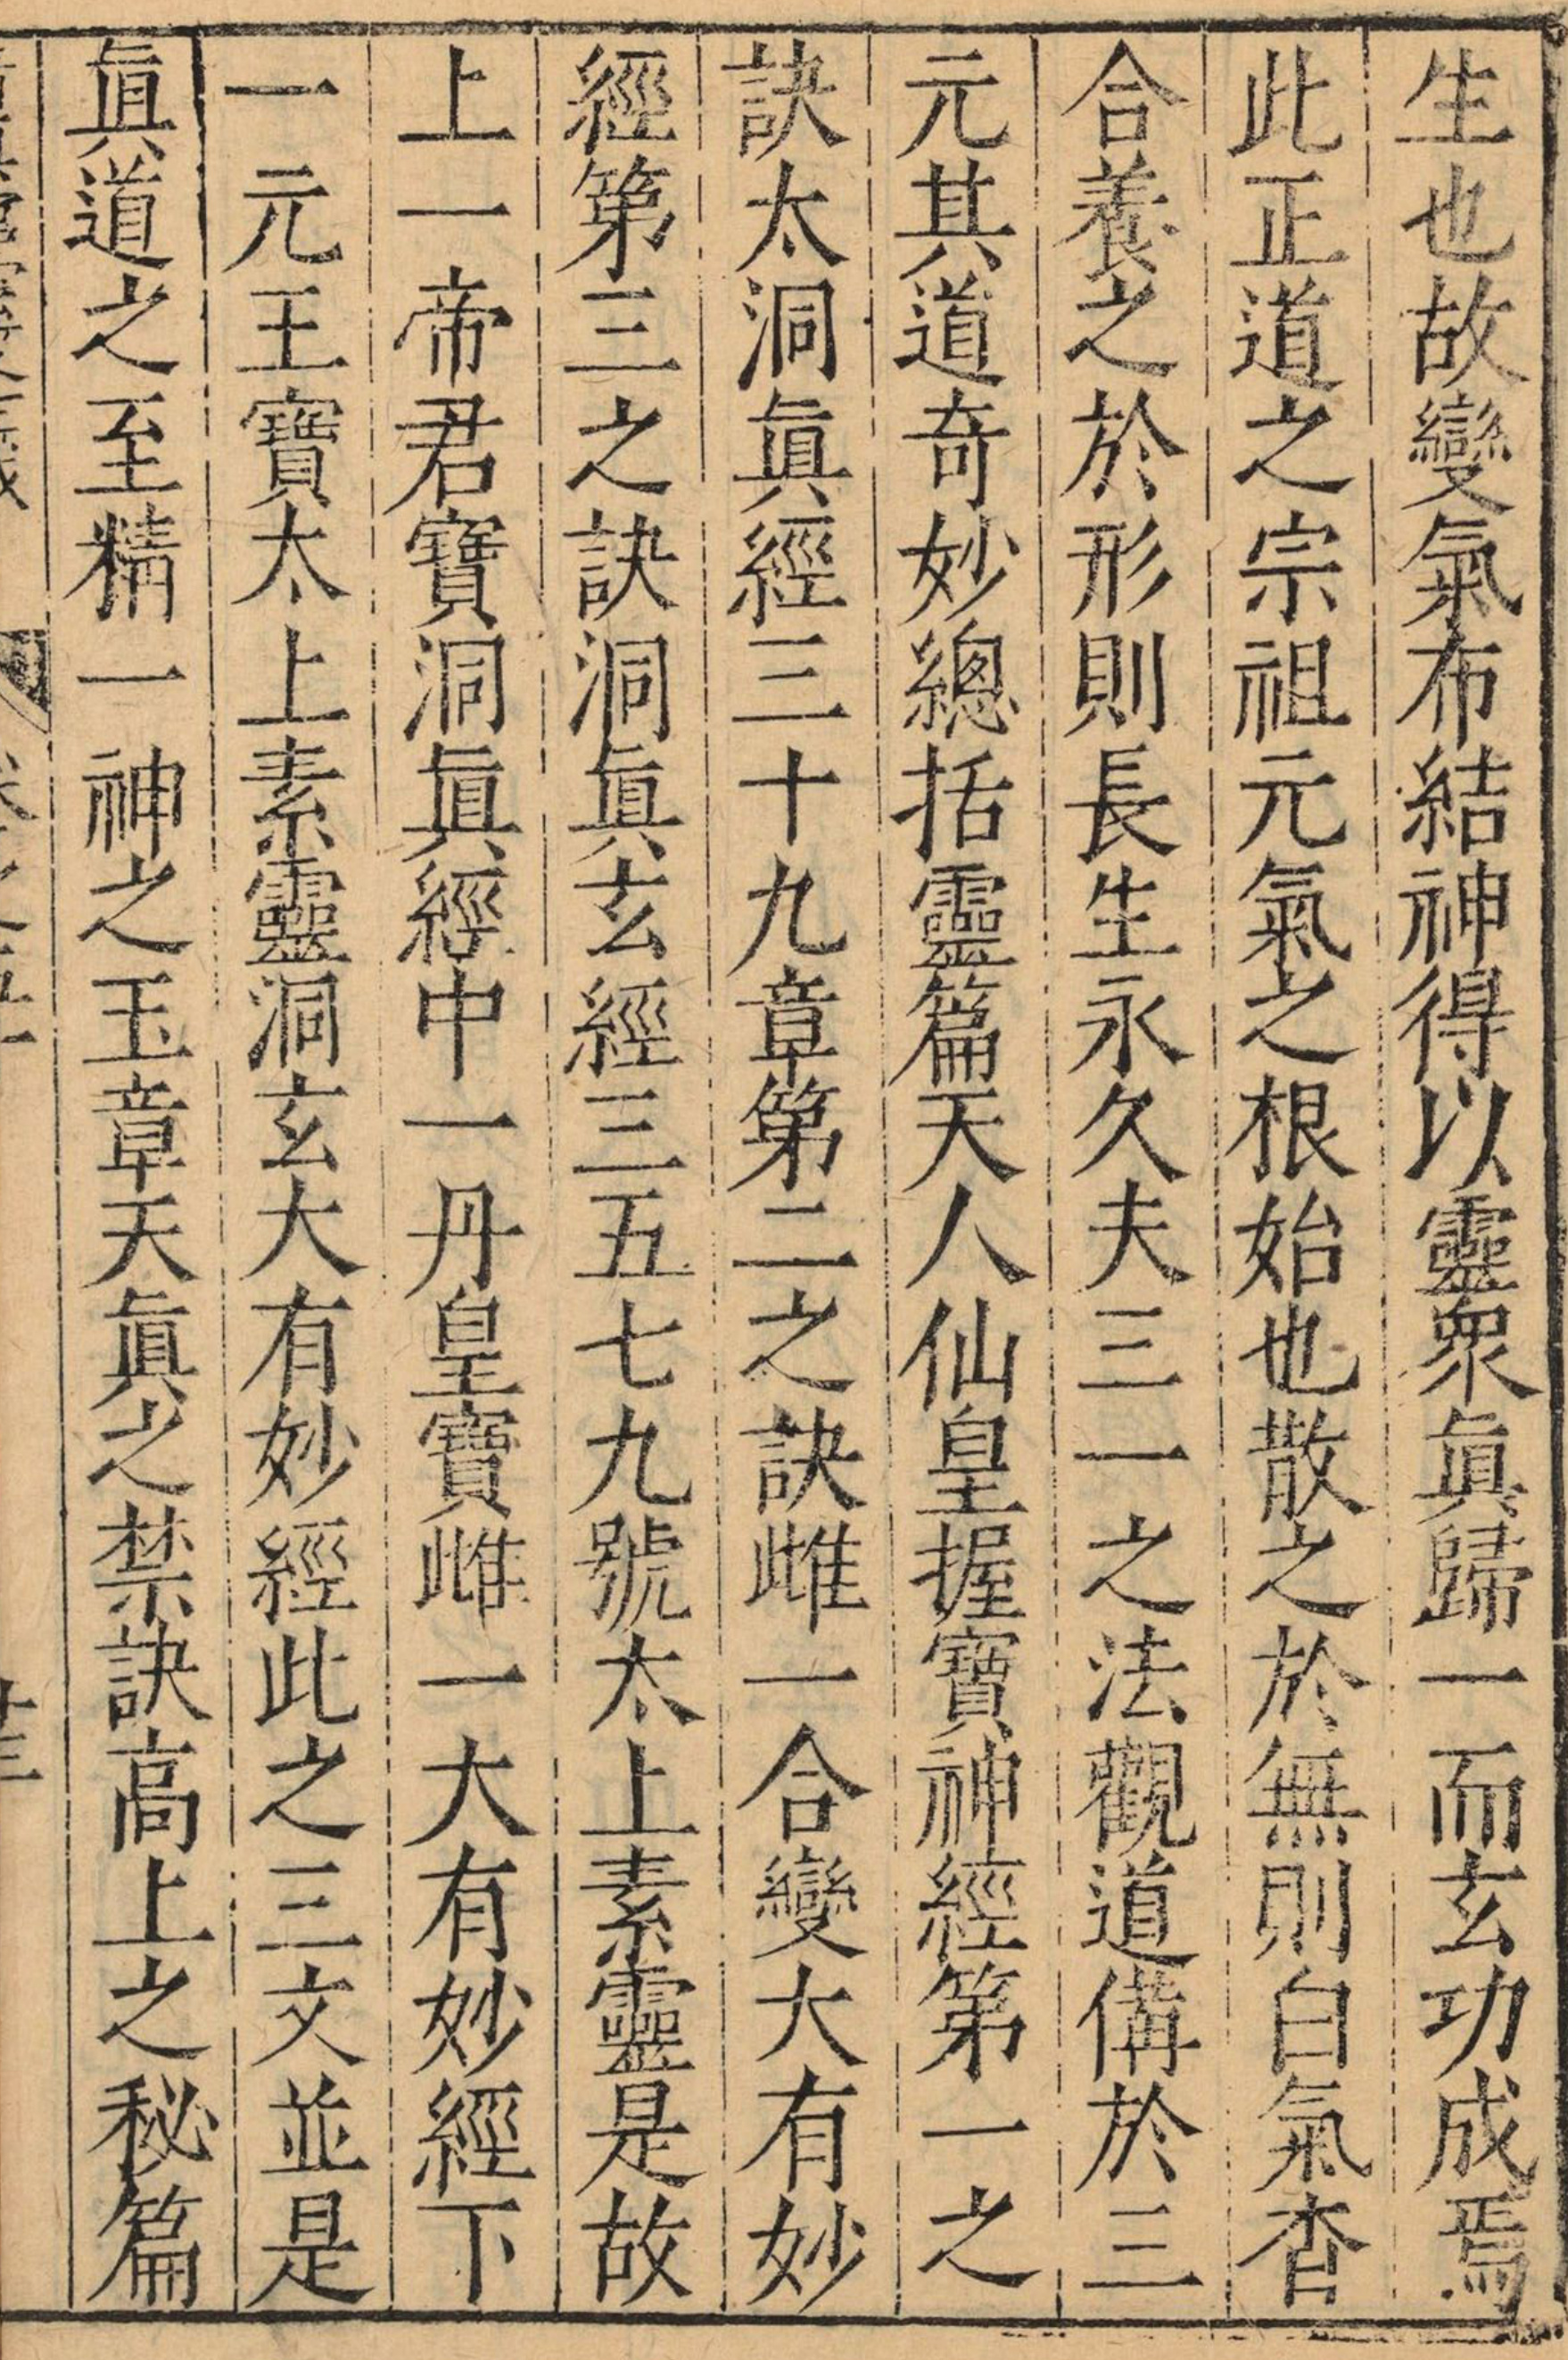 生也故變氣布結神得以靈衆眞歸一而玄功成焉
此正道之宗祖元氣之根始也散之於無則白氣杳
合養之於形則長生永久夫三一之法觀道備於三
元其道奇妙總括靈篇天人仙皇握寶神經第一之
訣太洞眞經三十九章第二之訣雌一合變大有妙
經第三之訣洞眞玄經三五七九號太上素靈是故
上一帝君寶洞眞經中一丹皇寶雌一大有妙經下
一元王寶太上素靈洞玄大有妙經此之三文並是
眞道之至精一神之玉章天眞之禁訣高上之秘篇